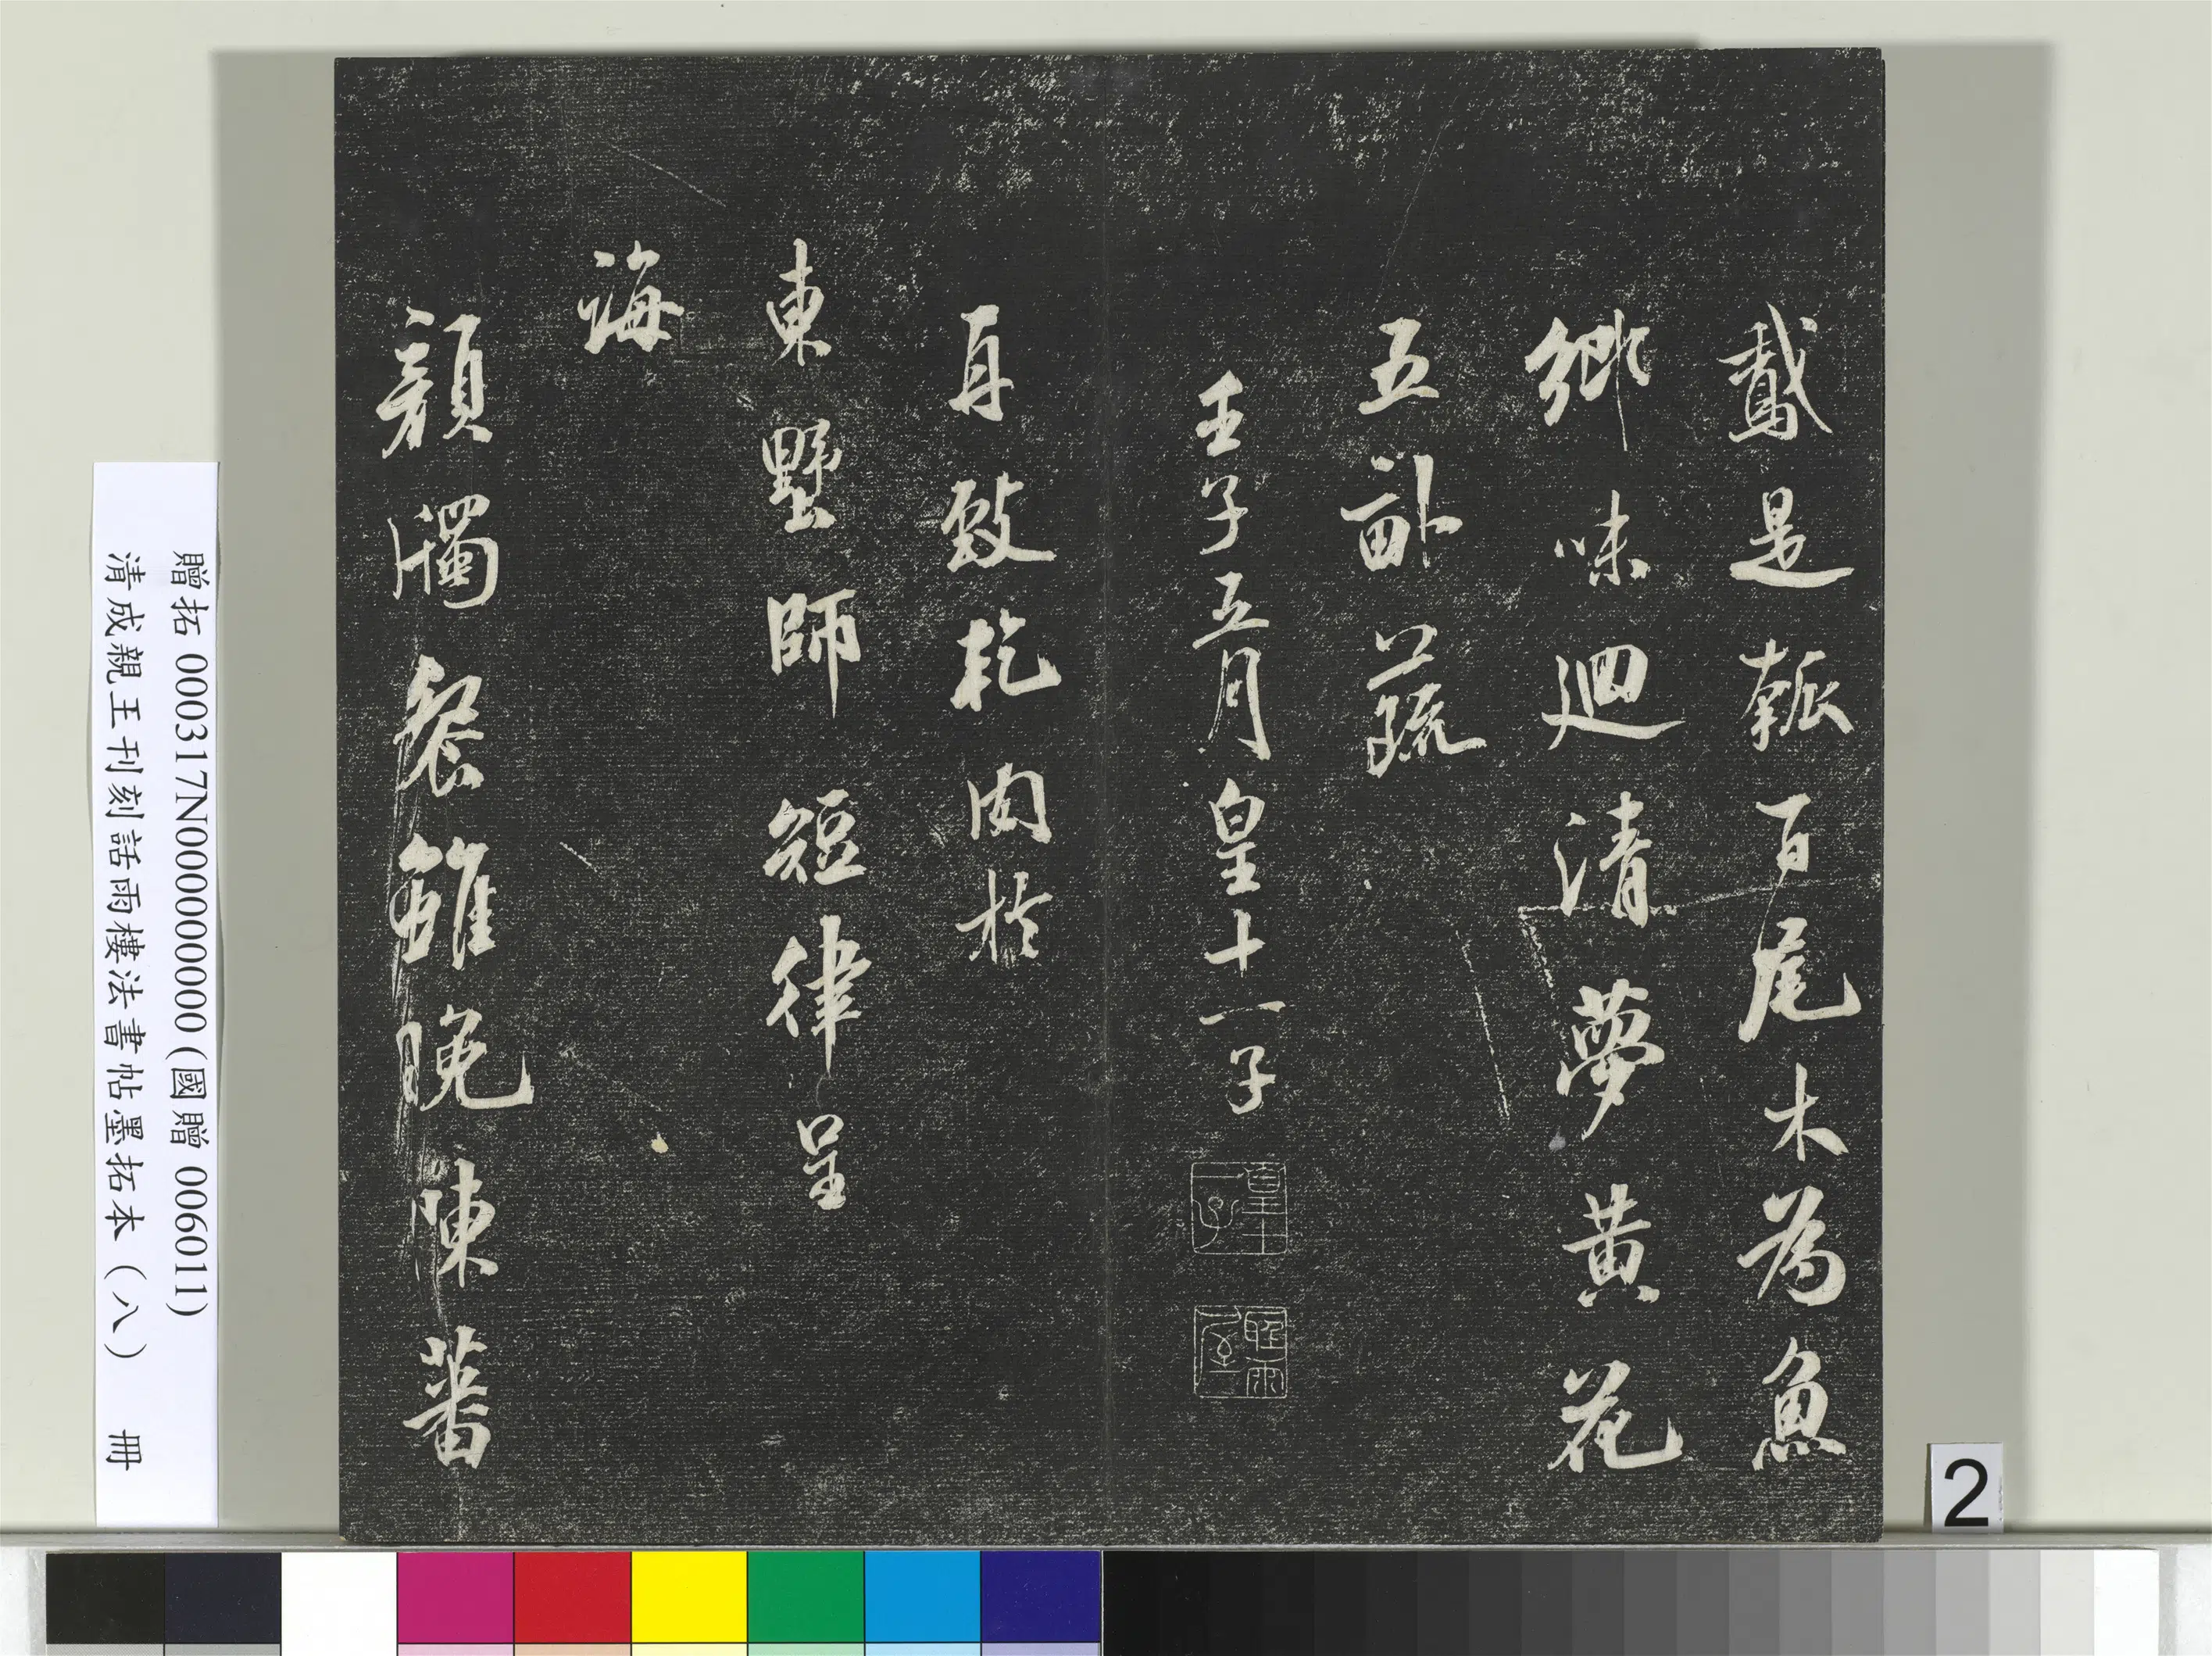 鵞是瓠百尾木為魚
鄉味迴清夢黃花
五畝蔬
壬子五月皇十一子
皇十一子
再致乾肉於
東墅師短律呈
誨
顏斶餐雖晚陳蕃
贈拓 000317N000000000 (國贈 006011)
清成親王刊刻話雨樓法書帖墨拓本(八) 冊
2